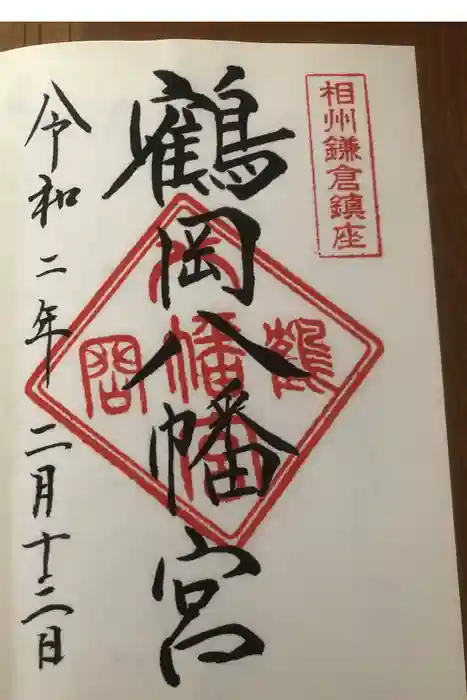 相州鎌倉鎮座
鶴岡八幡宮
鶴岡八幡宮
令和二年二月十二日